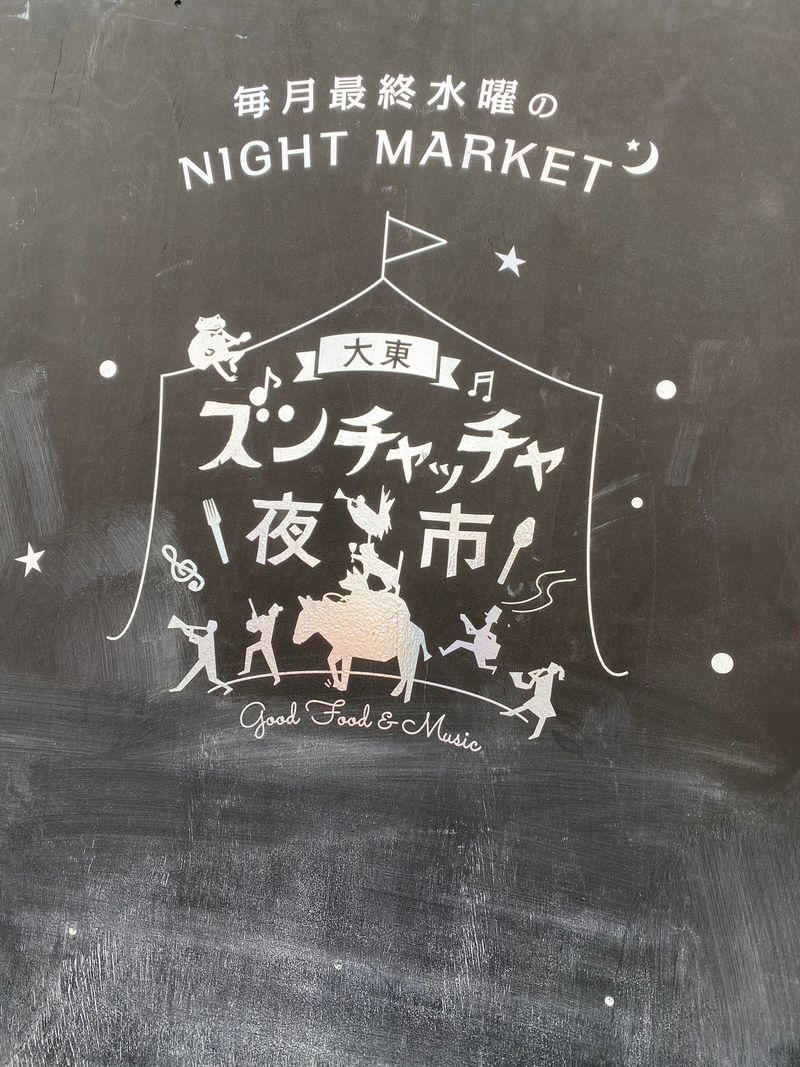 毎月最終水曜の
NIGHT MARKET
大東
ズンチャッチャ
夜市
Good Food & Music